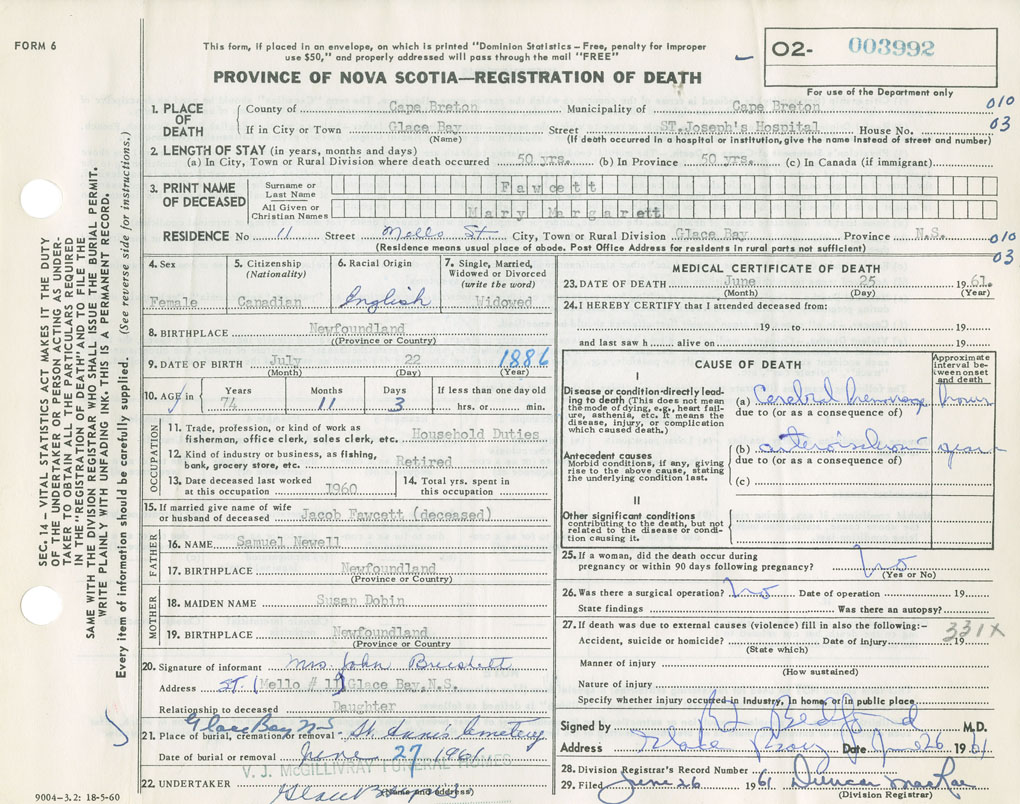 FORM 6
This form, if placed in an envelope, on which is printed "Dominion Statistics – Free, penalty for improper
use $50," and properly addressed will pass through the mail "FREE"
PROVINCE OF NOVA SCOTIA—REGISTRATION OF DEATH
O2- 003992
For use of the Department only
SEC. 14 – VITAL STATISTICS ACT MAKES IT THE DUTY
OF THE UNDERTAKER OR PERSON ACTING AS UNDER-
TAKER TO OBTAIN ALL THE PARTICULARS REQUIRED
IN THE "REGISTRATION OF DEATH" AND TO FILE THE
SAME WITH THE DIVISION REGISTRAR WHO SHALL ISSUE THE BURIAL PERMIT.
WRITE PLAINLY WITH UNFADING INK. THIS IS A PERMANENT RECORD.
Every item of information should be carefully supplied. (See reverse side for instructions.)
1. PLACE OF DEATH
County of Cape Breton Municipality of Cape Breton 010
If in City or Town Glace Bay Street ST. Joseph's Hospital House No. 03
(Name) (If death occurred in a hospital or institution, give name instead of street and number)
2. LENGTH OF STAY (in years, months and days)
(a) In City, Town or Rural Division where death occurred 50 yrs. (b) In Province 50 yrs. (c) In Canada (if immigrant)
3. PRINT NAME OF DECEASED
Surname or Last Name Fawcett
All Given or Christian Names Mary Margarett
RESIDENCE No 11 Street Mello St City, Town or Rural Division Glace Bay Province N.S. 010
(Residence means usual place of abode. Post Office Address for residents in rural parts not sufficient) 03
4. Sex Female
5. Citizenship (Nationality) Canadian
6. Racial Origin English
7. Single, Married, Widowed or Divorced (write the word) Widowed
8. BIRTHPLACE Newfoundland
(Province or Country)
9. DATE OF BIRTH July 22 1886
(Month) (Day) (Year)
10. AGE in Years 74 Months 11 Days 3 If less than one day old hrs. or min.
OCCUPATION
11. Trade, profession, or kind of work as
fisherman, office clerk, sales clerk, etc. Household Duties
12. Kind of industry or business, as fishing,
bank, grocery store, etc. Retired
13. Date deceased last worked at this occupation 1960
14. Total yrs. spent in this occupation
15. If married give name of wife
or husband of deceased Jacob Fawcett (deceased)
FATHER
16. NAME Samuel Newell
17. BIRTHPLACE Newfoundland
(Province or Country)
MOTHER
18. MAIDEN NAME Susan Dobin
19. BIRTHPLACE Newfoundland
(Province or Country)
20. Signature of informant Mrs. John
Address ST. (Mello # 11) Glace Bay, N.S.
Relationship to deceased Daughter
Glace Bay NS
21. Place of burial, cremation or removal St. Ann's Cemetery
Date of burial or removal June 27 1961
V. J. McGILLIVRAY FUNERAL HOMES
22. UNDERTAKER Glace Bay
(Name and address)
9004-3.2: 18-5-60
MEDICAL CERTIFICATE OF DEATH
23. DATE OF DEATH June 25 1961.
(Month) (Day) (Year)
24. I HEREBY CERTIFY that I attended deceased from:
19 to 19
and last saw h alive on 19
CAUSE OF DEATH
Approximate interval between onset and death
I
Disease or condition directly leading to death (This does not mean the mode of dying, e.g., heart failure, asthenia, etc. It means the disease, injury, or complication which caused death.)
(a) Cerebral hemorrage hours
due to (or as a consequence of)
Antecedent causes
Morbid conditions, if any, giving rise to the above cause, stating the underlying condition last.
(b) years
due to (or as a consequence of)
(c)
II
Other significant conditions
contributing to the death, but not related to the disease or condition causing it.
25. If a woman, did the death occur during
pregnancy or within 90 days following pregnancy? no
(Yes or No)
26. Was there a surgical operation? no Date of operation 19
State findings Was there an autopsy?
27. If death was due to external causes (violence) fill in also the following:– 331X
Accident, suicide or homicide? Date of injury 19
(State which)
Manner of injury
(How sustained)
Nature of injury
Specify whether injury occurred in industry, in home, or in public place
Signed by Bedford M.D.
Address Glace Bay Date June 26 1961
28. Division Registrar's Record Number
29. Filed June 26 1961 Duncan MacRae
(Division Registrar)